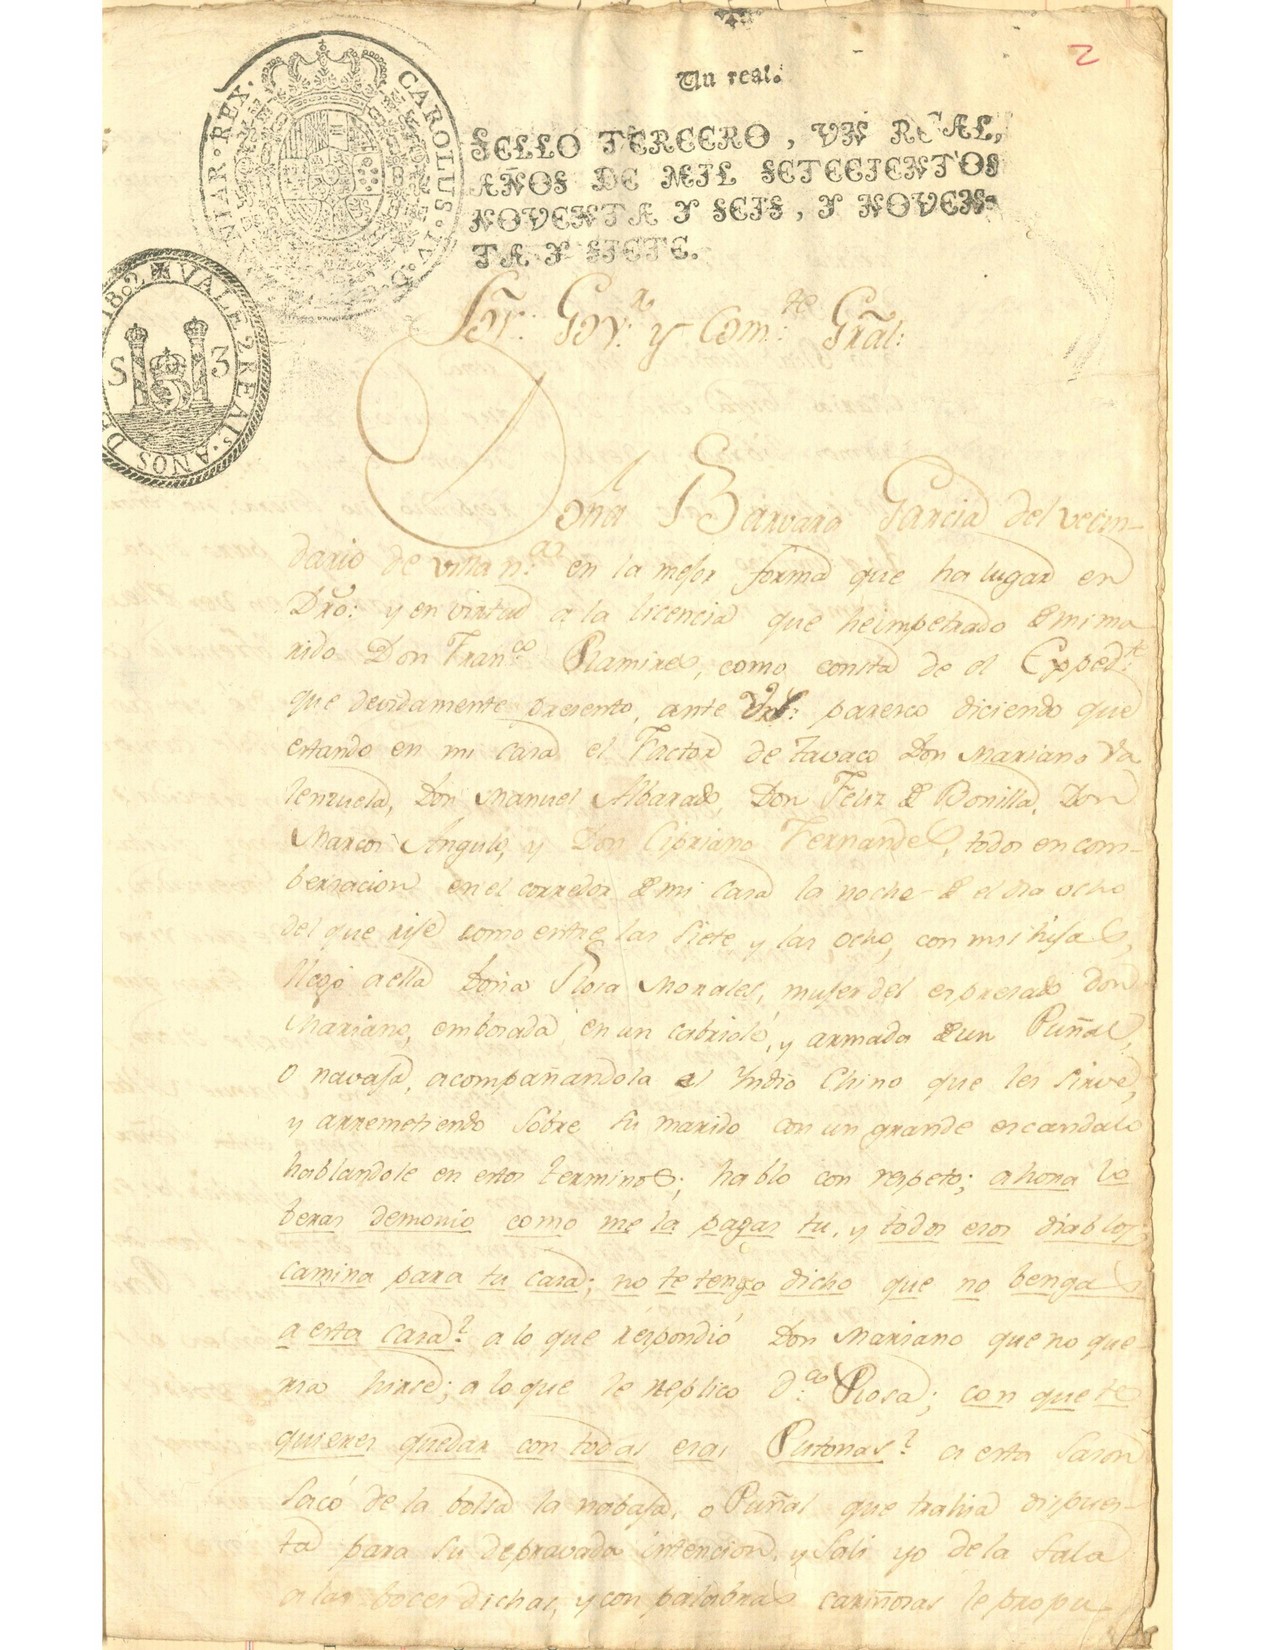 2
Un real.
SELLO TERCERO, UN REAL,
AÑOS DE MIL SETECIENTOS
NOVENTA Y SEIS, Y NOVEN-
TA Y SIETE.
CAROLUS · IV · D · G ·
NIAR · REX ·
1802 ✠ VALE 2 REALs. AÑOS DE
S 3
Sōr. Gov.or y Com.te Grāl:
Doña Bárvara Garcia del vecin-
dario de villa n.a en la mejor forma que ha lugar en
Dr̄o: y en virtud a la licencia que heimpetrado de mi ma
rido Don Fran.co Ramires, como consta de el Exped.te
que devidamente presento, ante Vs: paresco diciendo que
estando en mi casa el Factor de tavaco Don Mariano Va
lenzuela, Don Manuel Albarado, Don Feliz de Bonilla, Don
Marcos Angulo, y Don Cipriano Fernandes, todos en com-
bersacion en el corredor de mi casa la noche de el dia ocho
del que rije como entre las siete y las ocho, con mis hijas,
llegó a ella Doña Rosa Morales, muger del espresado Don
Mariano, embosada en un cabriolé, y armada de un Puñal,
o navaja, acompañandola el Yndio Chino que les sirve,
y arremetiendo sobre su marido con un grande escandalo
hablandole en estos terminos; hablo con respeto; ahora lo
beras demonio como me la pagas tu, y todos esos diablos,
camina para tu casa; no te tengo dicho que no bengas
a esta casa? a lo que respondió Don Mariano que no que-
ria hirse; a lo que le replico D.a Rosa; con que te
quieres quedar con todas esas Putonas? a esta sason
sacó de la bolsa la nabaja, o Puñal que trahia dispues-
ta para su depravada intencion, y sali yo de la sala
a las boces dichas, y con palabras cariñosas le propu-